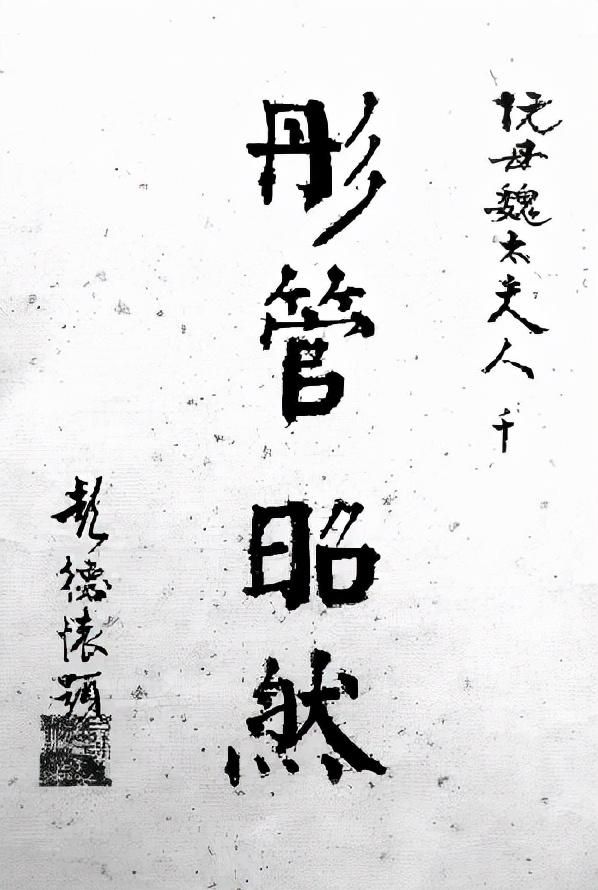 阮母魏太夫人千
彤管昭然
彭德懷題